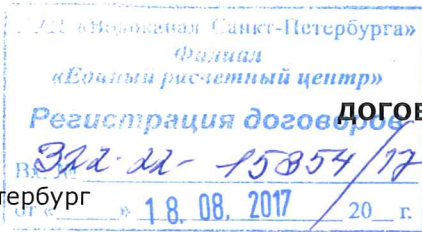 ГУП «Водоканал Санкт-Петербурга»
Филиал
«Единый расчетный центр»
Регистрация договоров
догов
Вх. № 322-22- 15854/17
тербург
от «____» 18. 08. 2017 20__ г.